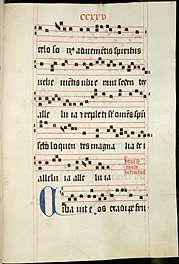 ccxxv
celo so nus advenientis spiritus
vehe mentis ubi e rant seden tes
alle lu ia et repleti sunt omnes spiri
scto loquen tes magna lia de i
alleluia alle lu ia
Ciba vit e os ex adi pe fru